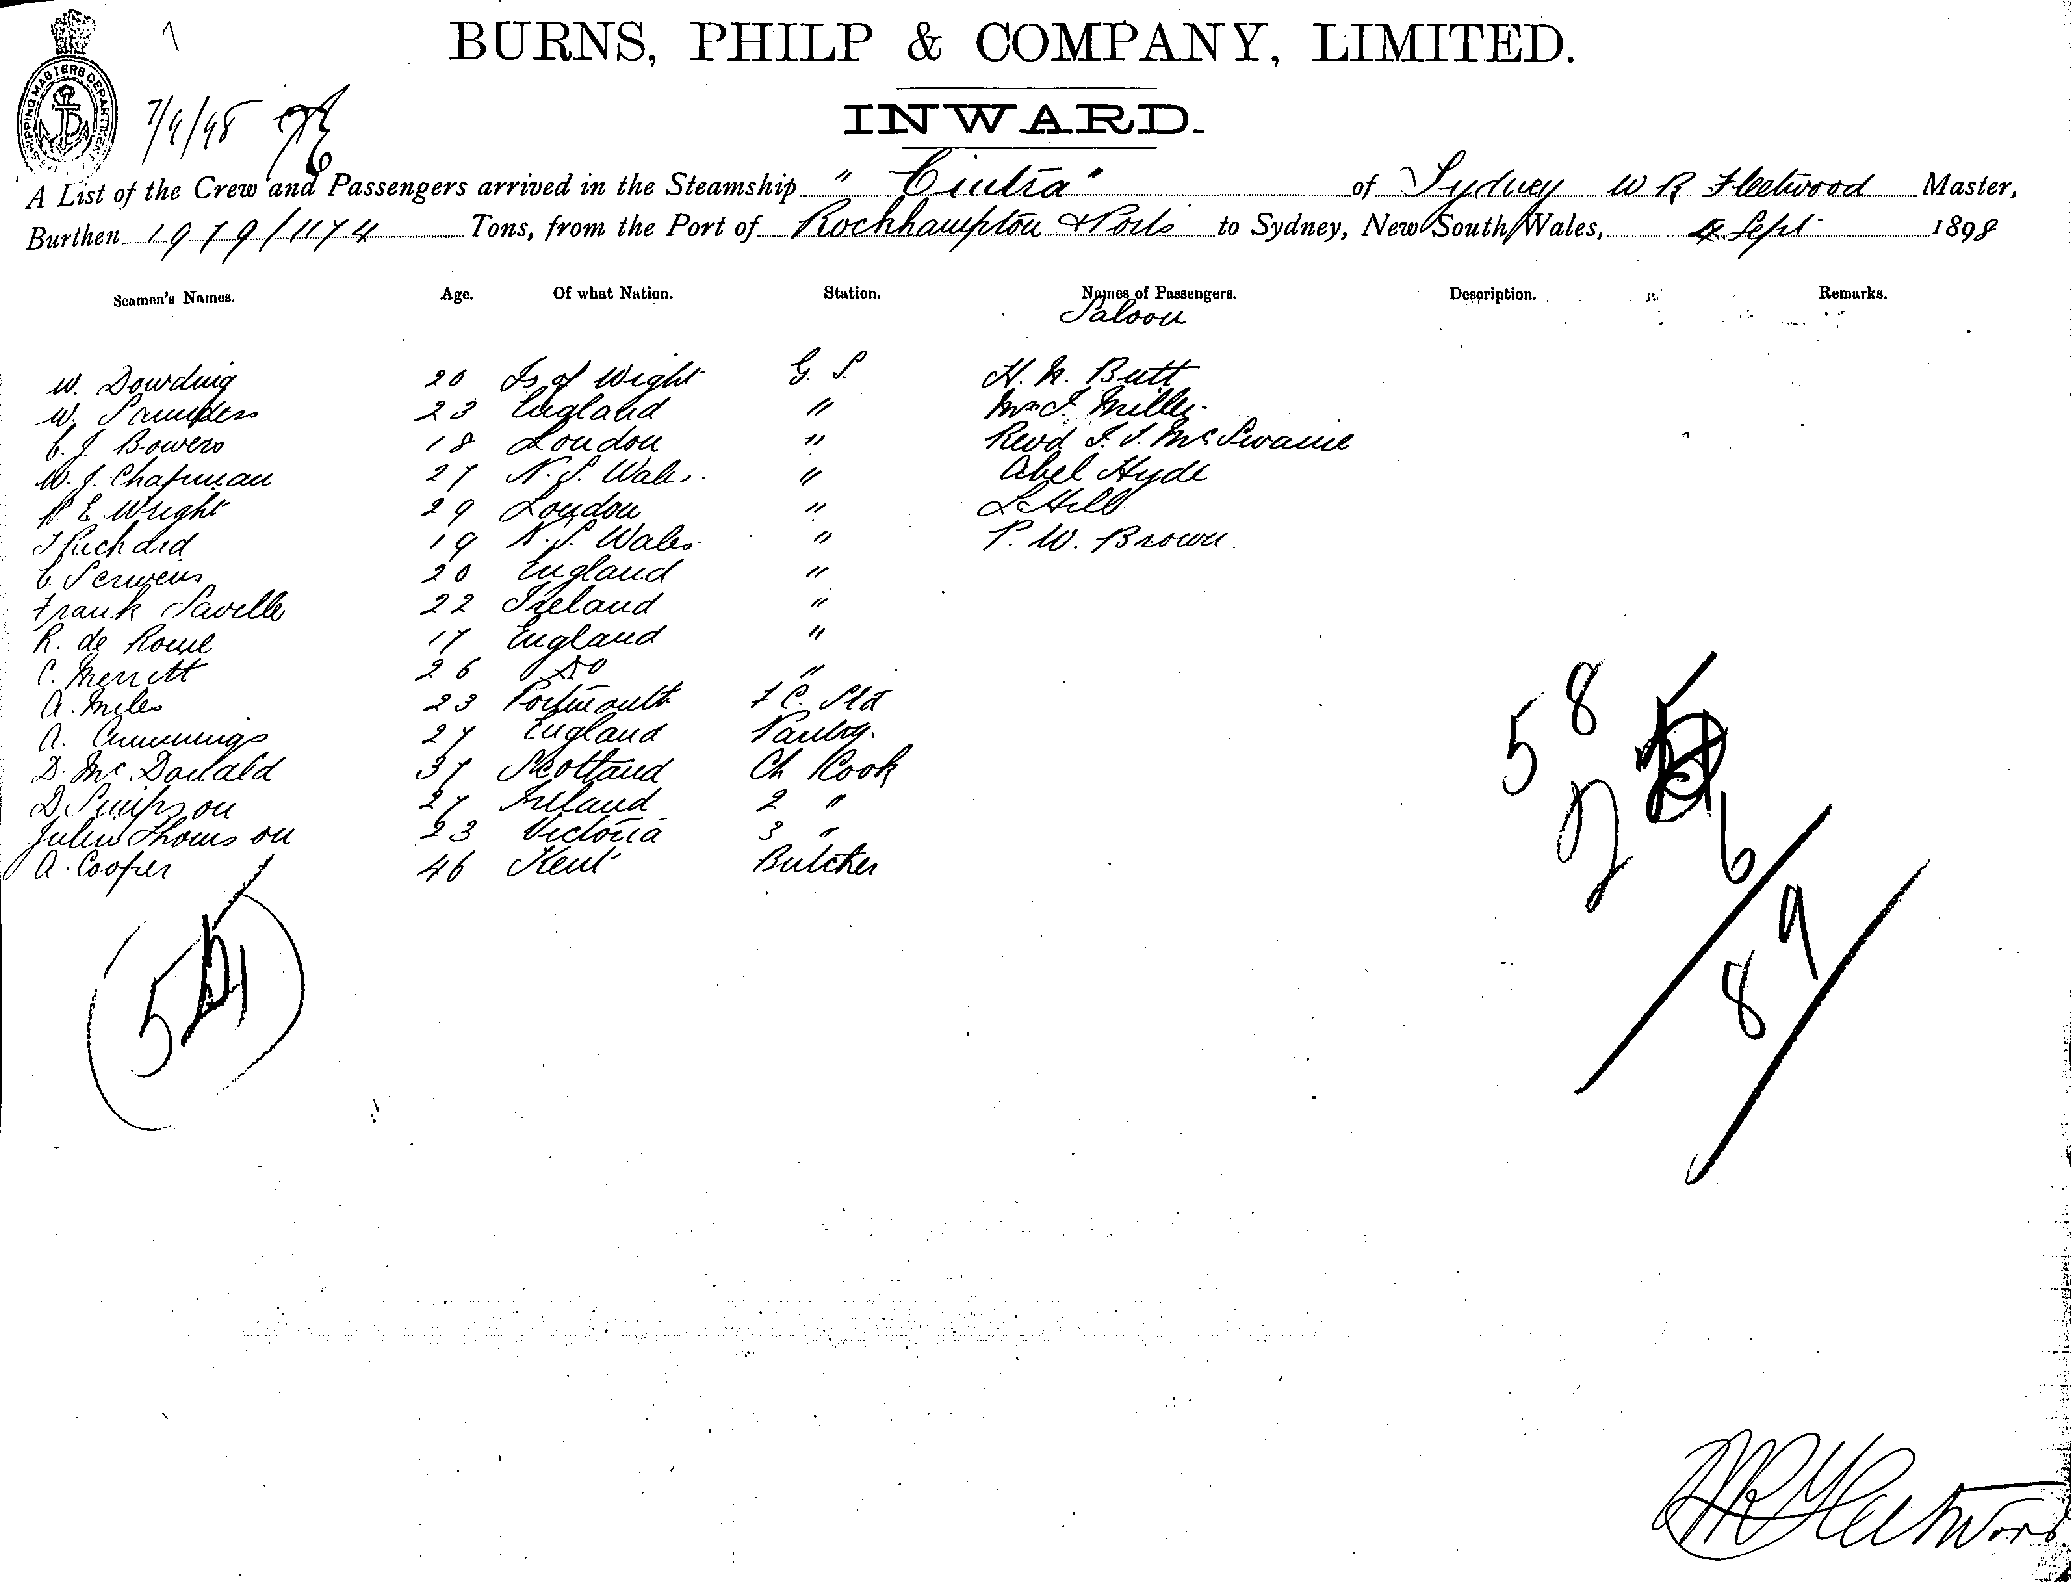 BURNS, PHILP & COMPANY, LIMITED.
INWARD.
SHIPPING MASTERS DEPARTMENT
7/9/98
A List of the Crew and Passengers arrived in the Steamship "Cintra" of Sydney W R Fleetwood Master,
Burthen 1979/1174 Tons, from the Port of Rockhampton & Ports to Sydney, New South Wales, 4 Sept 1898
Seamen's Names. Age. Of what Nation. Station. Names of Passengers. Description. Remarks.
Saloon
W. Dowding 20 Is of Wight G. S. H. N. Butt
W. Saunders 23 England " Mrs J. Miller
C. J. Bowers 18 London " Revd J. J. McSwaine
W. J. Chapman 27 N. S. Wales " Abel Hyde
E Wright 29 London " L Hill
19 N. S. Wales " P. W. Brown
20 England "
Frank Saville 22 Ireland "
R. de Rome 17 England "
C. Merrett 26 Do "
A. Miles 23 Portmouth F C. Std
A. Cummings 27 England Pantry.
D. McDonald 37 Scotland Ch Cook
D Simpson 27 Ireland 2 "
Julius Thomson 23 Victoria 3 "
A. Cooper 46 Kent Butcher
58
2
6
89
W R Fleetwood